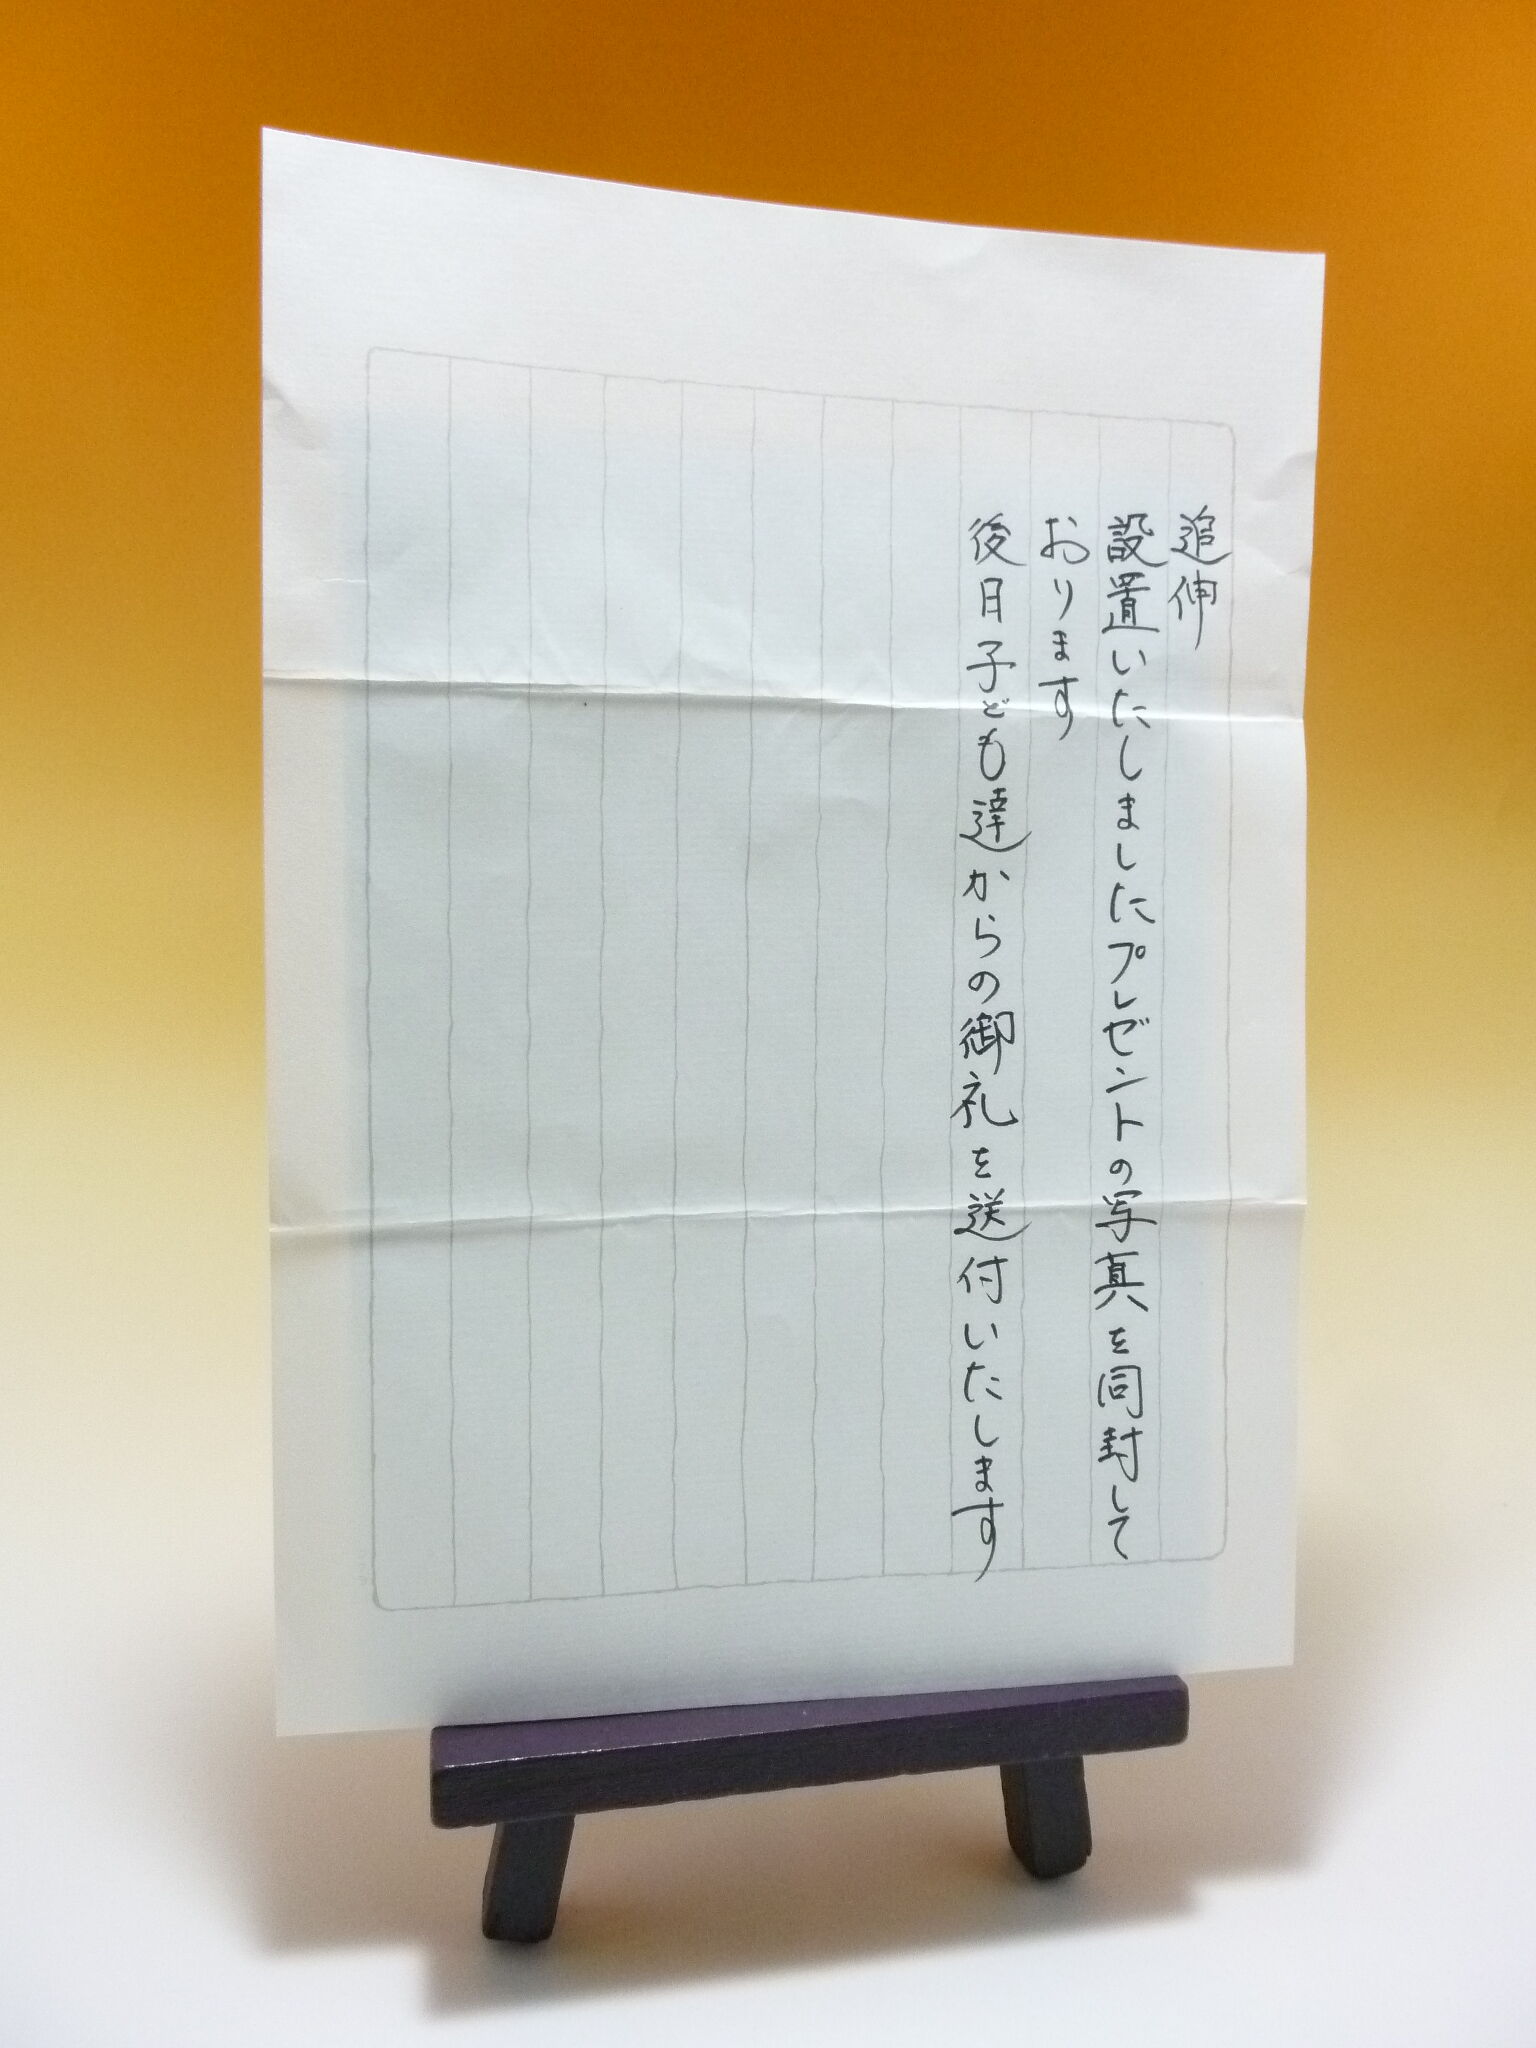 追伸
設置いたしましたプレゼントの写真を同封して
おります
後日子ども達からの御礼を送付いたします